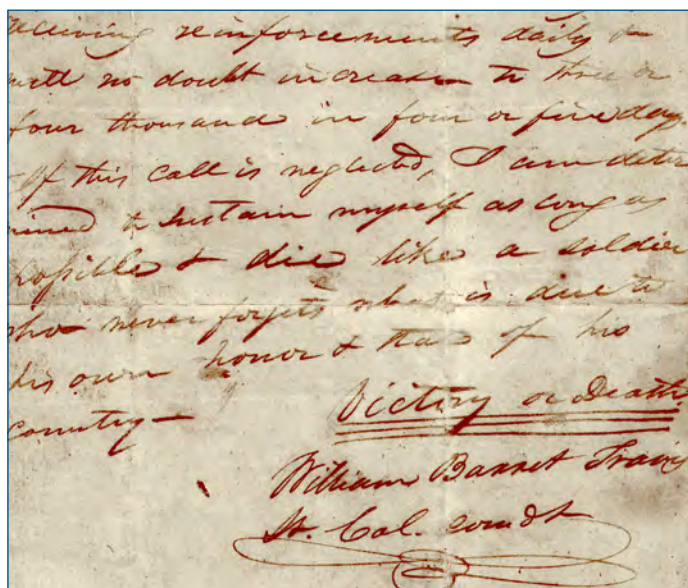 receiving reinforcements daily &
will no doubt increase to three or
four thousand in four or five days.
If this call is neglected, I am deter
mined to sustain myself as long as
possible & die like a soldier
who never forgets what is due to
his own honor & that of his
country—
Victory or Death
William Barret Travis
Lt. Col. comdt